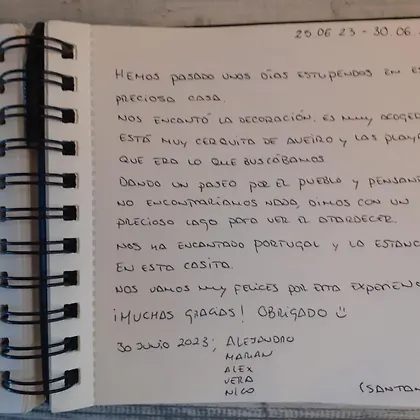 25.06 23 - 30.06.
HEMOS PASADO UNOS DÍAS ESTUPENDOS EN ES
PRECIOSA CASA.
NOS ENCANTÓ LA DECORACIÓN. ES MUY ACOGE
ESTÁ MUY CERQUITA DE AVEIRO Y LAS PLAY
QUE ERA LO QUE BUSCÁBAMOS
DANDO UN PASEO POR EL PUEBLO Y PENSAN
NO ENCONTRARÍAMOS NADA, DIMOS CON UN
PRECIOSO LAGO PARA VER EL ATARDECER.
NOS HA ENCANTADO PORTUGAL Y LA ESTANC
EN ESTA CASITA.
NOS VAMOS MUY FELICES POR ESTA EXPERIENC
¡MUCHAS GRACIAS! OBRIGADO
30 JUNIO 2023; ALEJANDRO
MARIAN
ALEX
VERA
NICO
(SANTAN